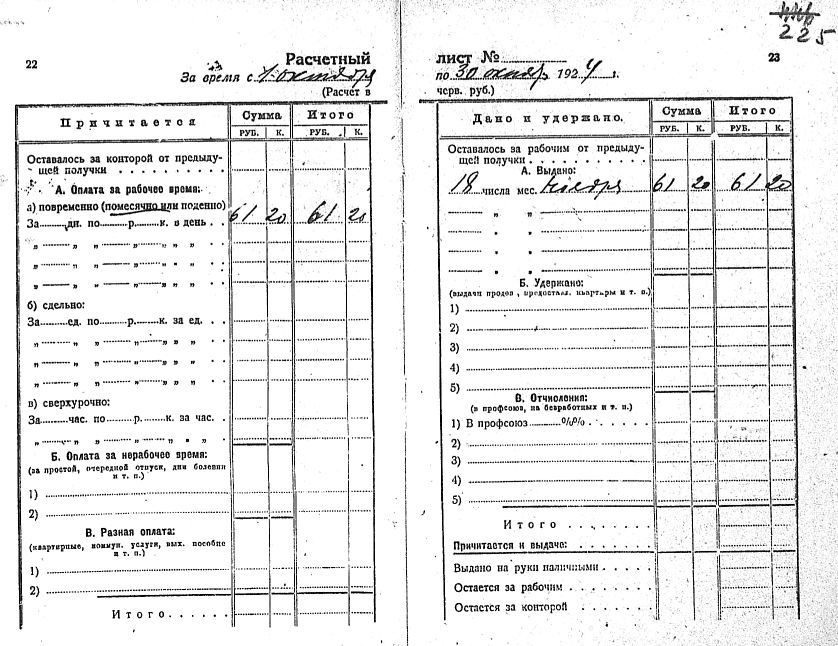 225
22
Расчетный
За время с 1 октября
(Расчет в
Причитается
Сумма
Итого
РУБ. К. РУБ. К.
Оставалось за конторой от предыду-
щей получки
А. Оплата за рабочее время:
а) повременно (помесячно или поденно)
За дн. по р. к. в день
61 20 61 20
„ „ „ „ „ „
„ „ „ „ „ „
„ „ „ „ „ „
б) сдельно:
За ед. по р. к. за ед.
„ „ „ „ „ „
„ „ „ „ „ „
„ „ „ „ „ „
в) сверхурочно:
За час. по р. к. за час.
„ „ „ „ „ „
Б. Оплата за нерабочее время:
(за простой, очередной отпуск, дни болезни
и т. п.)
1)
2)
В. Разная оплата:
(квартирные, коммун. услуги, вых. пособие
и т. п.)
1)
2)
Итого
лист №
23
по 30 октяб 1924 г.
черв. руб.)
Дано и удержано.
Сумма
Итого
РУБ. К. РУБ. К.
Оставалось за рабочим от предыду-
щей получки
А. Выдано:
18 числа мес. ноября 61 20 61 20
„ „
„ „
„ „
„ „
Б. Удержано:
(выдачи продов., предоставл. квартиры и т. п.)
1)
2)
3)
4)
5)
В. Отчисления:
(в профсоюз, на безработных и т. п.)
1) В профсоюз %%
2)
3)
4)
5)
Итого
Причитается к выдаче:
Выдано на руки наличными
Остается за рабочим
Остается за конторой